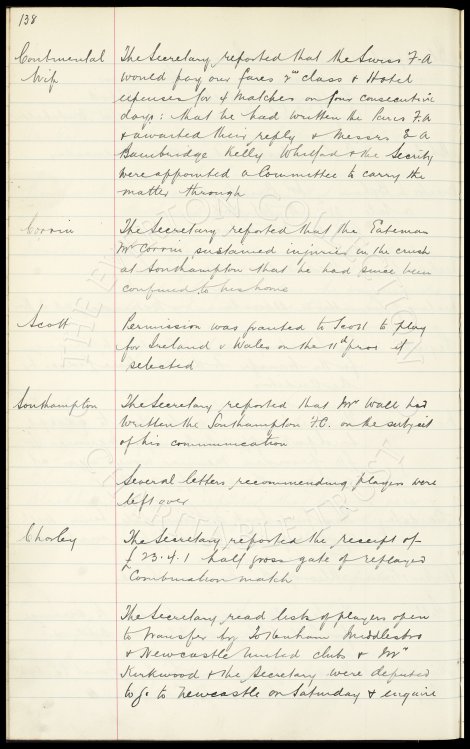 138
Continental The Secretary reported that the Swiss F.A
Trip would pay our fares 2nd class & Hotel
expenses for 4 matches on four consecutive
days: that he had written the Paris F.A
& awaited their reply & Messrs E A
Bainbridge Kelly Whitford & the Secrety
were appointed a Committee to carry the
matter through
The Secretary reported that the Gateman
Mr sustained injuries in the crush
at Southampton that he had since been
confined to his home
Scott Permission was granted to Scott to play
for Ireland v Wales on the 11th prox if
selected
Southampton The Secretary reported that Mr Wall had
written the Southampton F.C. on the subject
of his communication
Several letters recommending players were
left over
Chorley The Secretary reported the receipt of
£23.4.1 half gross gate of replayed
Combination match
The Secretary read lists of players open
to transfer by Tottenham Middlesbro
& Newcastle United clubs & Mr
Kirkwood & the Secretary were deputed
to go to Newcastle on Saturday & enquire
THE EVERTON COLLECTION
CHARITABLE TRUST